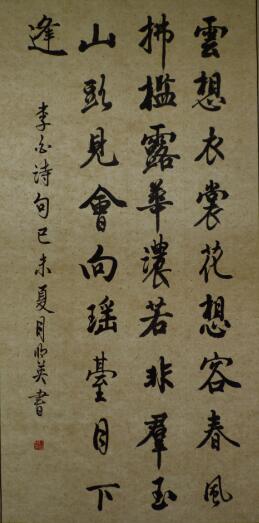 雲想衣裳花想容春風
拂檻露華濃若非羣玉
山頭見會向瑶臺月下
逢
李白诗句己未夏月